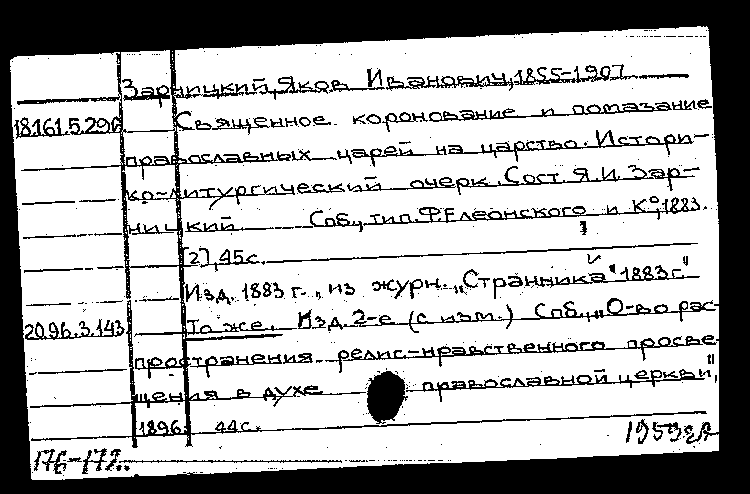 Зарницкий, Яков Иванович, 1855-1907
18.161.5.290 Священное коронование и помазание
православных царей на царство. Истори-
ко-литургический очерк. Сост. Я.И. Зар-
ницкий. Спб., тип. Ф. Елеонского и К°, 1883.
[2], 45с.
Изд. 1883 г., из журн. „Странника" 1883 г."
20.96.3.143 То же. Изд. 2-е (с изм.) Спб., „О-во рас-
пространения религ.-нравственного просве-
щения в духе православной церкви",
1896. 44с.
176-172